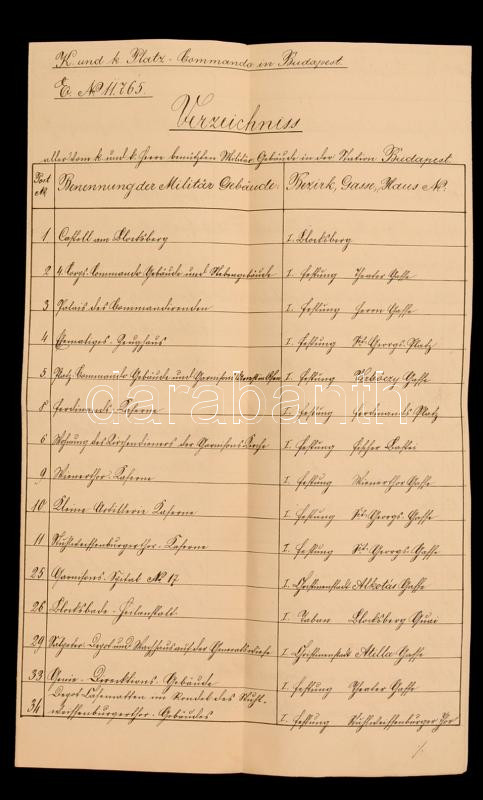 K. und k. Platz-Commando in Budapest.
E. No 11.765.
Verzeichniss
aller vom k. und k. Heere benützten Militär Gebäude in der Station Budapest.
Post No Benennung der Militär Gebäude: Bezirk, Gasse, Haus No.
1 Castell am Blocksberg I. Blocksberg
2 4. Corps-Commando Gebäude und Nebengebäude I. Festung Theater Gasse
3 Palais des Commandirenden I. Festung Herrn Gasse
4 Ehemaliges Zeughaus I. Festung Sct. Georgs Platz
5 Platz-Commando Gebäude und Garnisons Arrest in Ofen I. Festung Verböczy Gasse
8 Ferdinands Kaserne I. Festung Ferdinands Platz
darabanth
6 Wohnung des Kirchendieners der Garnisons Kirche I. Festung Fischer Bastei
9 Wienerthor-Kaserne I. Festung Wienerthor Gasse
10 Kleine Artillerie Kaserne I. Festung Sct. Georgs Gasse
11 Stuhlweissenburgerthor-Kaserne I. Festung Sct. Georgs Gasse
25 Garnisons-Spital No 17 I. Christinenstadt Alkotás Gasse
26 Blocksbade-Heilanstalt I. Taban Blocksberg Quai
29 Salpeter Depot und Wachhaus auf der Generalswiese I. Christinenstadt Atilla Gasse
33 Genie-Direktions-Gebäude I. Festung Theater Gasse
34 Depot Casematten im Rondel des Stuhl-
weissenburgerthor-Gebäudes I. Festung Stuhlweissenburger Thor